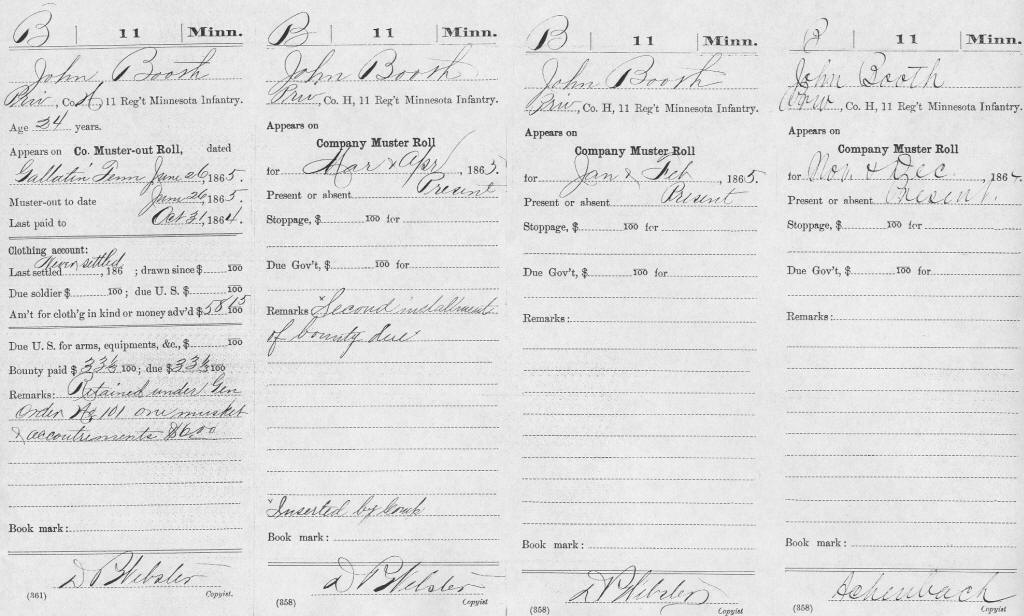 B | 11 | Minn.
John Booth
Priv, Co. H, 11 Reg't Minnesota Infantry.
Age 34 years.
Appears on Co. Muster-out Roll, dated
Gallatin Tenn June 26, 1865.
Muster-out to date June 26, 1865.
Last paid to Oct 31, 1864.
Clothing account:
Last settled Never settled, 186 ; drawn since $ 100
Due soldier $ 100; due U. S. $ 100
Am't for cloth'g in kind or money adv'd $ 58 15 100
Due U. S. for arms, equipments, &c., $ 100
Bounty paid $ 33⅓ 100; due $ 33⅓ 100
Remarks: Retained under Gen
Order No 101 one musket
& accoutrements $6.00
Book mark:
D P Webster
(361) Copyist.
B | 11 | Minn.
John Booth
Priv, Co. H, 11 Reg't Minnesota Infantry.
Appears on
Company Muster Roll
for Mar & Apr, 1865.
Present or absent Present
Stoppage, $ 100 for
Due Gov't, $ 100 for
Remarks: *Second installment
of bounty due
*Inserted by
Book mark:
D P Webster
(358) Copyist
B | 11 | Minn.
John Booth
Priv, Co. H, 11 Reg't Minnesota Infantry.
Appears on
Company Muster Roll
for Jan & Feb, 1865.
Present or absent Present
Stoppage, $ 100 for
Due Gov't, $ 100 for
Remarks:
Book mark:
D P Webster
(358) Copyist.
B | 11 | Minn.
John Booth
Priv, Co. H, 11 Reg't Minnesota Infantry.
Appears on
Company Muster Roll
for Nov. & Dec., 1864.
Present or absent Present.
Stoppage, $ 100 for
Due Gov't, $ 100 for
Remarks:
Book mark:
Achenbach
(358) Copyist.